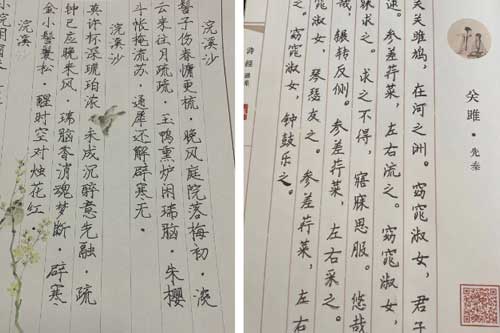 浣溪沙
髻子伤春慵更梳·晚风庭院落梅初·淡
云来往月疏疏·玉鸭熏炉闲瑞脑·朱樱
斗帐掩流苏·通犀还解辟寒无·
浣溪沙
莫许杯深琥珀浓·未成沉醉意先融·疏
钟已应晚来风·瑞脑香消魂梦断·辟寒
金小髻鬟松·醒时空对烛花红·
浣溪沙
小院闲窗春
关雎·先秦
关关雎鸠，在河之洲。窈窕淑女，君子
逑。参差荇菜，左右流之。窈窕淑女，
寐求之。求之不得，寤寐思服。悠哉
哉，辗转反侧。参差荇菜，左右采之。
窕淑女，琴瑟友之。参差荇菜，左右
之。窈窕淑女，钟鼓乐之。
诗经